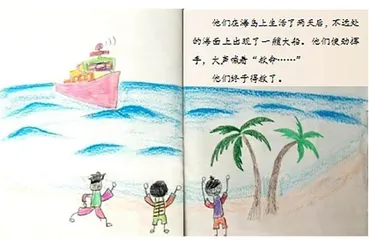 他们在海岛上生活了两天后，不远处
的海面上出现了一艘大船。他们使劲挥
手，大声喊着“救命……”
他们终于得救了。